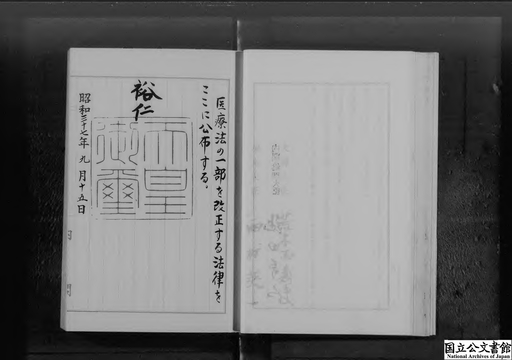 医療法の一部を改正する法律を
ここに公布する。
裕仁
天皇
御璽
昭和三十七年九月十五日
国立公文書館
National Archives of Japan